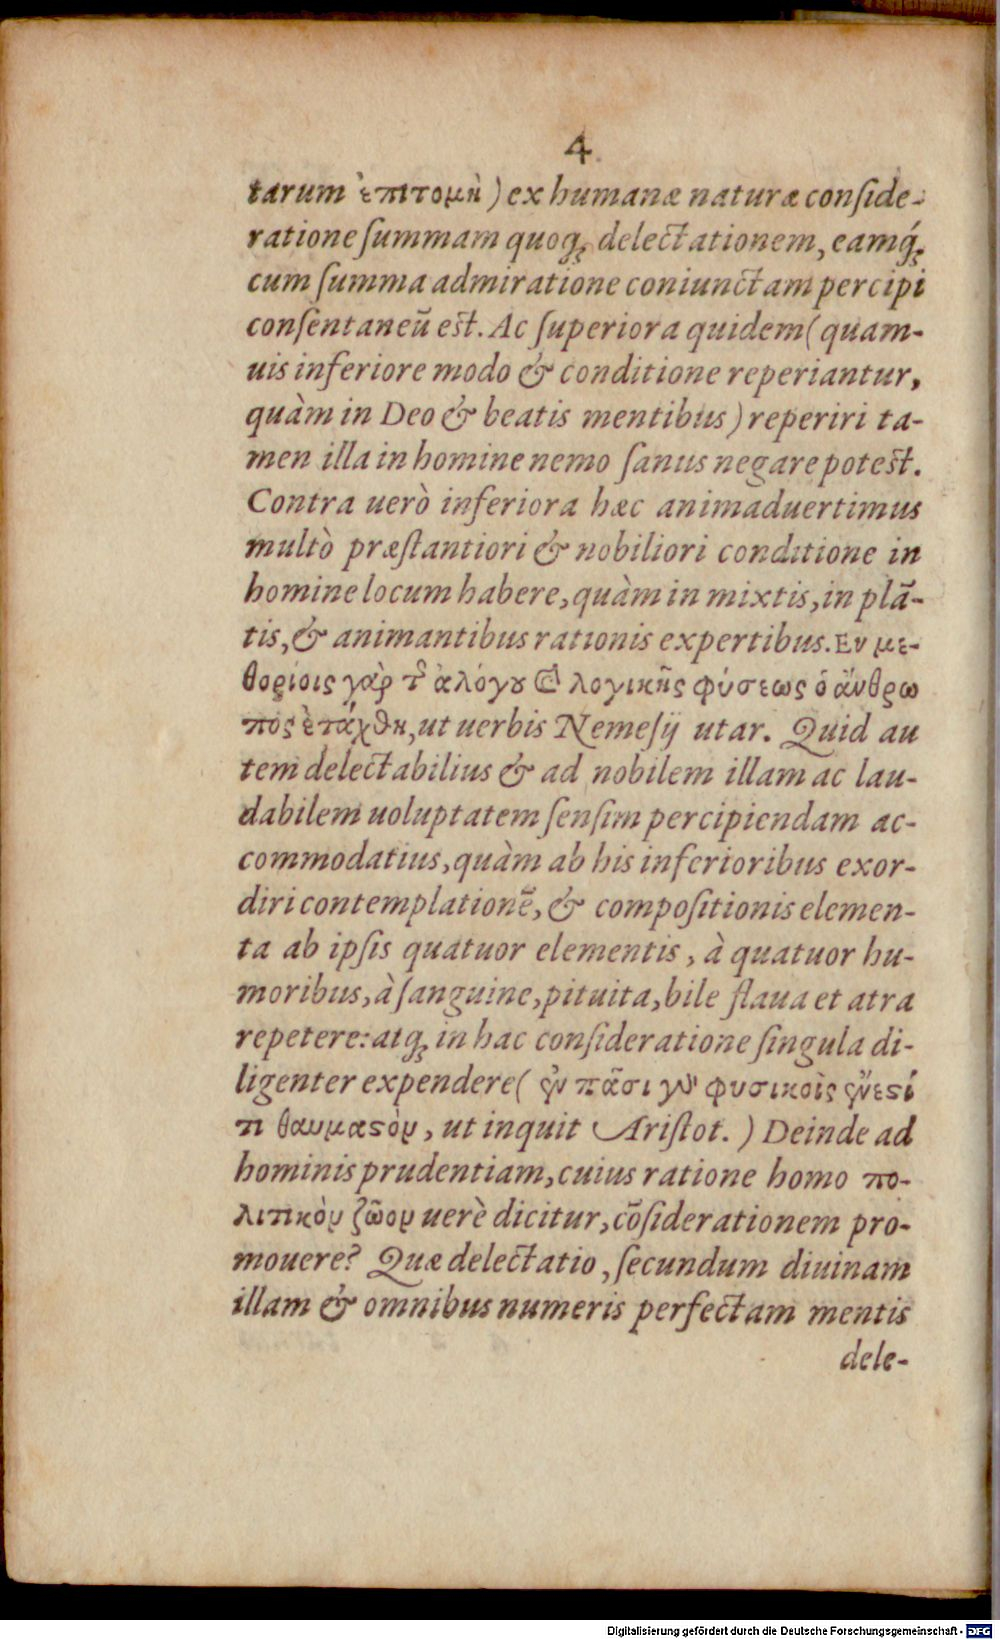 4
tarum ἐπιτομὴ) ex humanæ naturæ conſide-
ratione ſummam quoq; delectationem, eamq́;
cum ſumma admiratione coniunctam percipi
conſentaneũ est. Ac ſuperiora quidem (quam-
uis inferiore modo & conditione reperiantur,
quàm in Deo & beatis mentibus) reperiri ta-
men illa in homine nemo ſanus negare potest.
Contra uerò inferiora hæc animaduertimus
multò præſtantiori & nobiliori conditione in
homine locum habere, quàm in mixtis, in plã-
tis, & animantibus rationis expertibus. Εν με-
θορίοις γὰρ τ͂ ἀλόγȣ Ⓒ λογικῆς φύσεως ὁ ἄνθρω
πος ἐτάχθη, ut uerbis Nemeſij utar. Quid au
tem delectabilius & ad nobilem illam ac lau-
dabilem uoluptatem ſenſim percipiendam ac-
commodatius, quàm ab his inferioribus exor-
diri contemplationẽ, & compoſitionis elemen-
ta ab ipſis quatuor elementis, à quatuor hu-
moribus, à ſanguine, pituita, bile flaua et atra
repetere: atq; in hac conſideratione ſingula di-
ligenter expendere (ἐν πᾶσι γὰρ φυσικοῖς ἔνεϛί
τι θαυμαϛὸν, ut inquit Ariſtot.) Deinde ad
hominis prudentiam, cuius ratione homo πο-
λιτικὸν ζῶον uerè dicitur, cõſiderationem pro-
mouere? Quæ delectatio, ſecundum diuinam
illam & omnibus numeris perfectam mentis
dele-
Digitalisierung gefördert durch die Deutsche Forschungsgemeinschaft - DFG